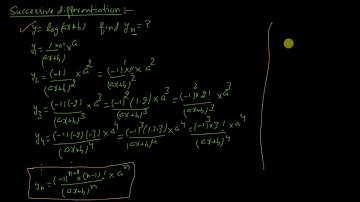 Successive differentiation :-
✓ y = log(ax+b) find yₙ = ?
y₁ = 1×0! / (ax+b) × a
y₂ = (-1) / (ax+b)² × a² = (-1)¹×1! × a² / (ax+b)²
y₃ = (-1)(-2) / (ax+b)³ × a³ = (-1)²(1·2) / (ax+b)³ × a³ = (-1)²×2! / (ax+b)³ × a³
y₄ = (-1)(-2)(-3) × a⁴ / (ax+b)⁴ = (-1)³(1·2·3) × a⁴ / (ax+b)⁴ = (-1)³×3! × a⁴ / (ax+b)⁴
yₙ = (-1)ⁿ⁻¹ × (n-1)! × aⁿ / (ax+b)ⁿ